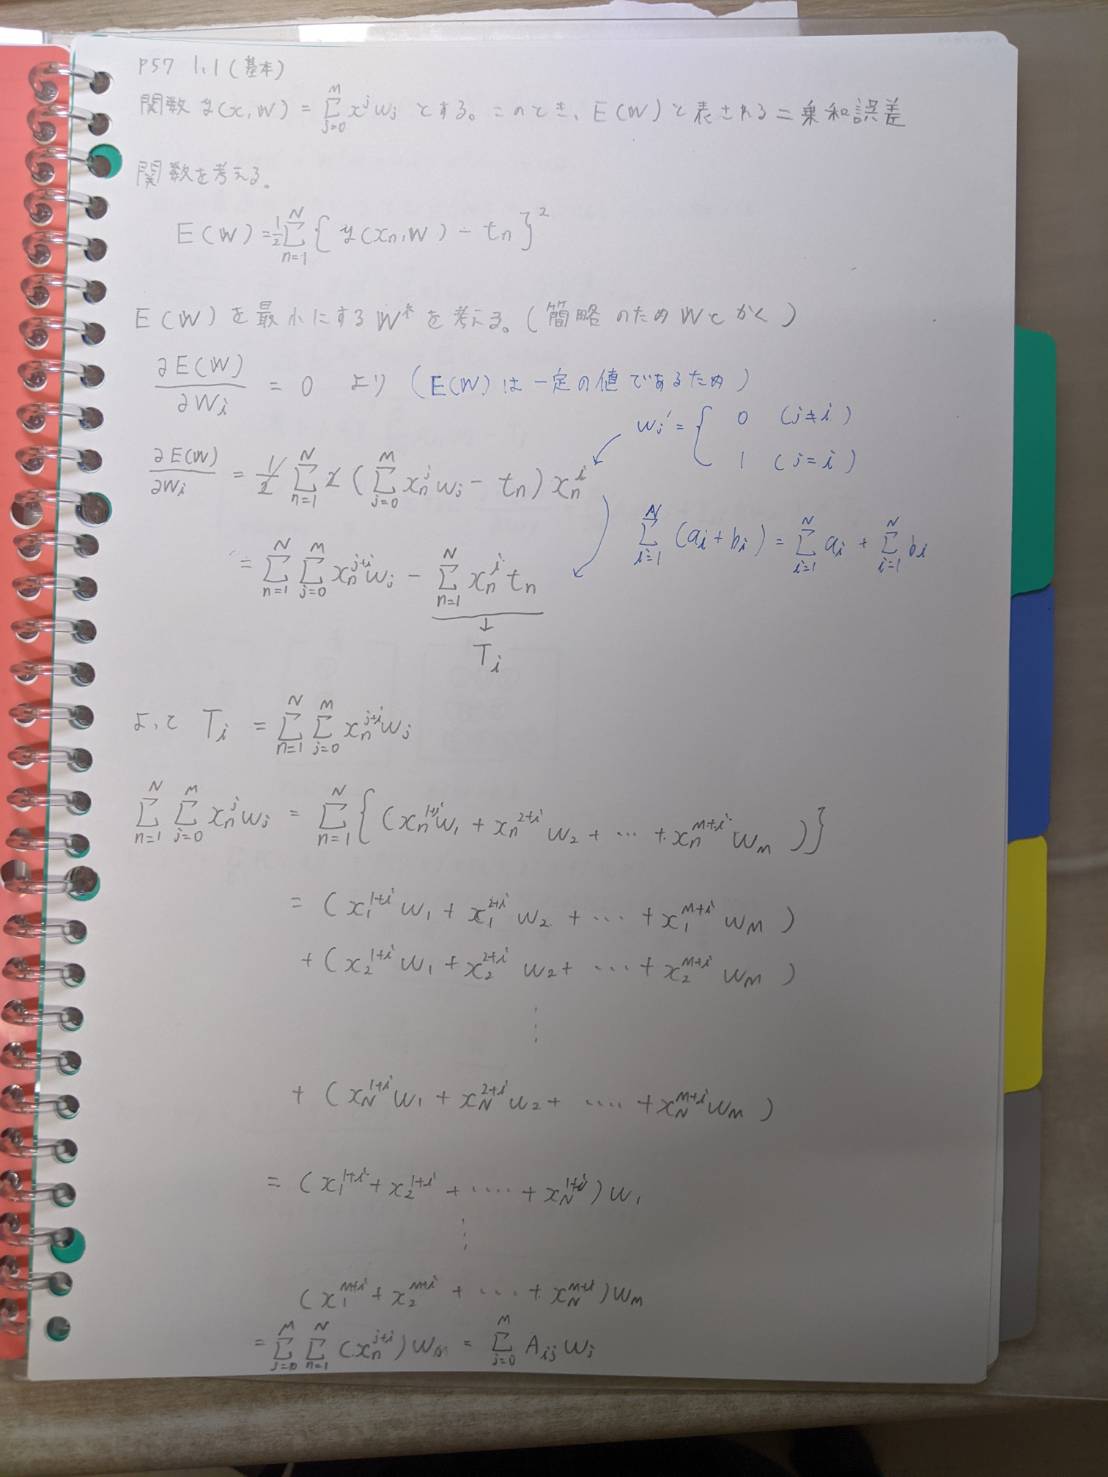 P57 1.1 (基本)
関数 y(x,w) = Σ_{j=0}^{M} x^j w_j とする。このとき、E(w)と表される二乗和誤差
関数を考える。
E(w) = 1/2 Σ_{n=1}^{N} { y(x_n,w) - t_n }^2
E(w)を最小にする w* を考える。(簡略のため w とかく)
∂E(w)/∂w_i = 0 より (E(w)は一定の値であるため)
w_j' = { 0 (j≠i)
1 (j=i)
∂E(w)/∂w_i = 1/2 Σ_{n=1}^{N} 2 ( Σ_{j=0}^{M} x_n^j w_j - t_n ) x_n^i
Σ_{i=1}^{N} (a_i + b_i) = Σ_{i=1}^{N} a_i + Σ_{i=1}^{N} b_i
= Σ_{n=1}^{N} Σ_{j=0}^{M} x_n^{j+i} w_j - Σ_{n=1}^{N} x_n^i t_n
↓
T_i
よって T_i = Σ_{n=1}^{N} Σ_{j=0}^{M} x_n^{j+i} w_j
Σ_{n=1}^{N} Σ_{j=0}^{M} x_n^j w_j = Σ_{n=1}^{N} { (x_n^{1+i} w_1 + x_n^{2+i} w_2 + … + x_n^{M+i} w_M ) }
= ( x_1^{1+i} w_1 + x_1^{2+i} w_2 + … + x_1^{M+i} w_M )
+ ( x_2^{1+i} w_1 + x_2^{2+i} w_2 + … + x_2^{M+i} w_M )
⋮
+ ( x_N^{1+i} w_1 + x_N^{2+i} w_2 + …. + x_N^{M+i} w_M )
= ( x_1^{1+i} + x_2^{1+i} + …. + x_N^{1+i} ) w_1
⋮
( x_1^{M+i} + x_2^{M+i} + … + x_N^{M+i} ) w_M
= Σ_{j=0}^{M} Σ_{n=1}^{N} (x_n^{j+i}) w_m = Σ_{j=0}^{M} A_{ij} w_j